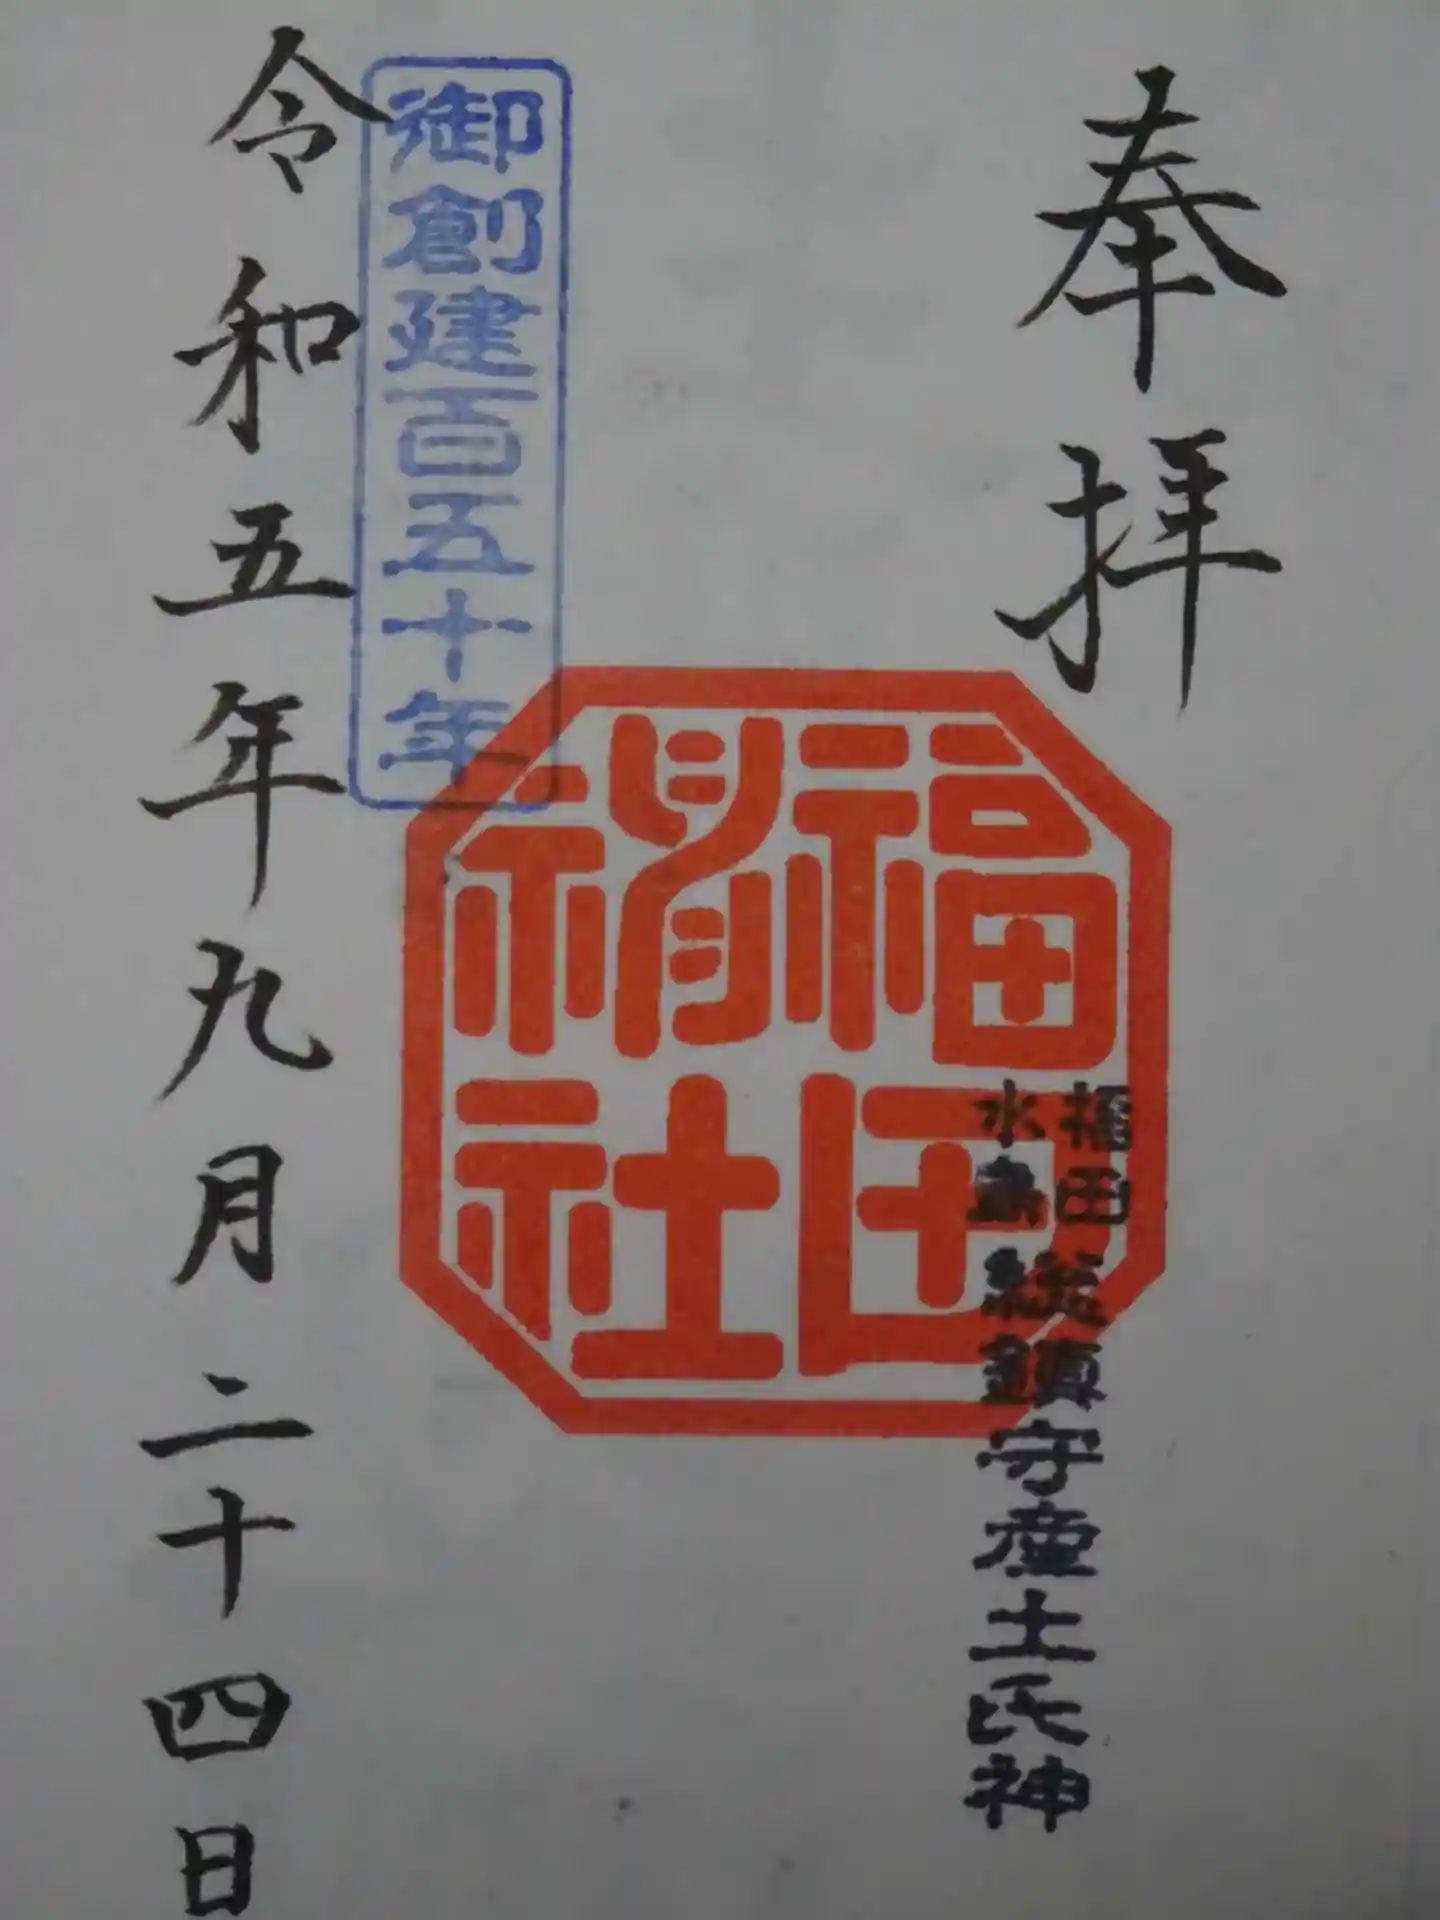 奉拝
福田
水島
総鎮守産土氏神
福田
神社
御創建百五十年
令和五年九月二十四日